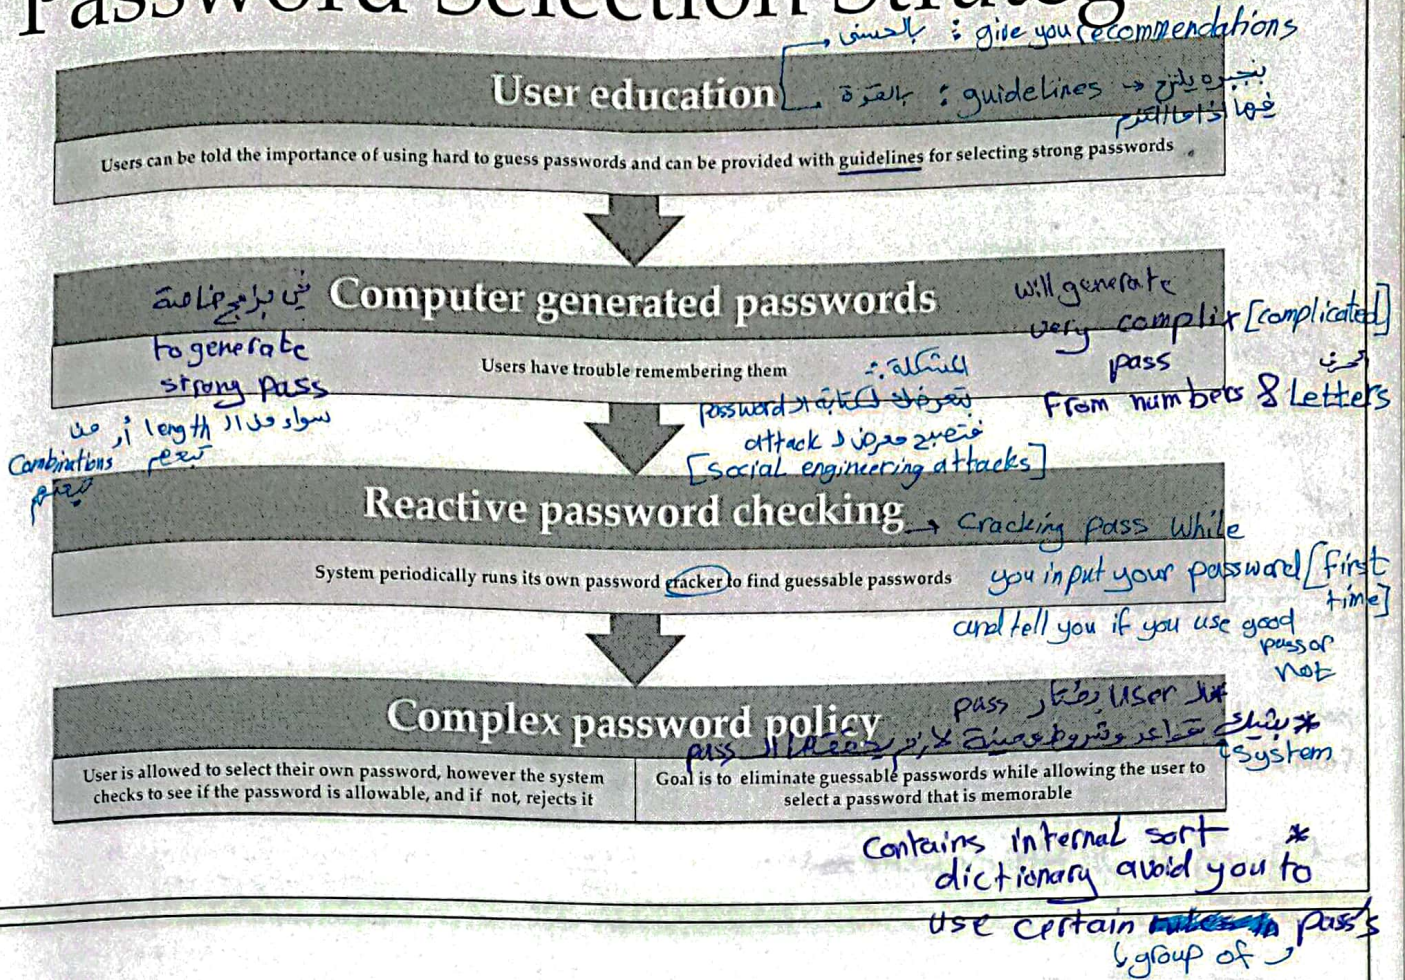 Password Selection Strateg
بالحسنى : give you recommendations
User education
بالقوة : guidelines → بنجبره يلتزم
فيها إذا ما التزم
Users can be told the importance of using hard to guess passwords and can be provided with guidelines for selecting strong passwords
Computer generated passwords
في برامج خاصة
to generate
strong pass
سواء من ال length أو من
combinations تبعهم
تبعتهم
will generate
very complix [complicated]
pass
From numbers & Letters
أحرف
Users have trouble remembering them
المشكلة :-
بتعرضك لكتابة ال password
فتصبح معرض ل attack
[social engineering attacks]
Reactive password checking
→ Cracking pass while
you input your password [first
time]
and tell you if you use good
pass or
not
System periodically runs its own password cracker to find guessable passwords
Complex password policy
User بختار pass
* بشيك قواعد وشروط معينة لازم يحققها ال pass
system
User is allowed to select their own password, however the system
checks to see if the password is allowable, and if not, rejects it
Goal is to eliminate guessable passwords while allowing the user to
select a password that is memorable
* contains internal sort
dictionary avoid you to
use certain pass's
group of